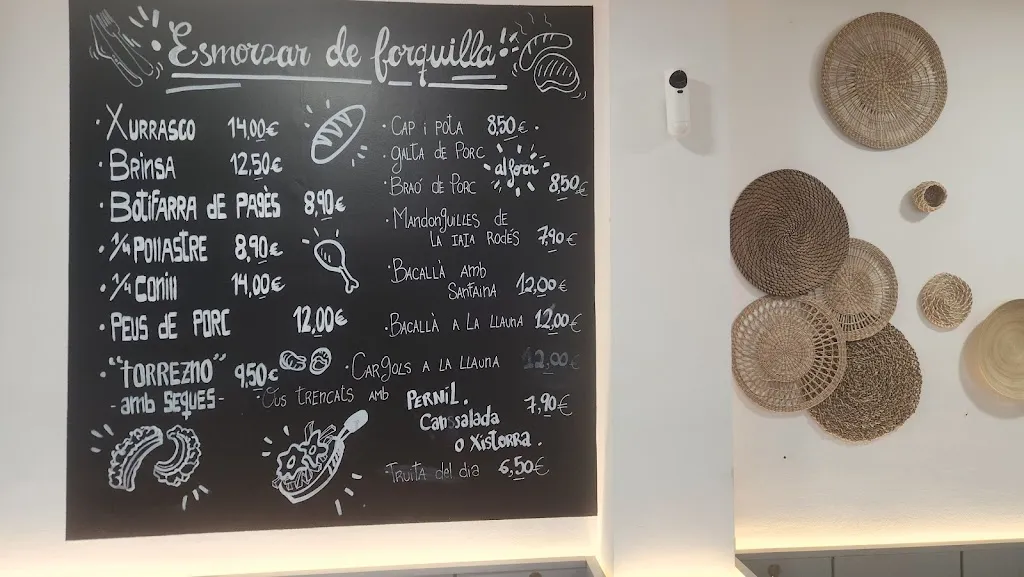 Esmorzar de forquilla!
· Xurrasco 14,00€
· Brinsa 12,50€
· Botifarra de Pagès 8,90€
· 1/4 Pollastre 8,90€
· 1/4 Conill 14,00€
· Peus de Porc 12,00€
· "Torrezno" 9,50€
- amb seques -
· Cap i pota 8,50€ ·
· Galta de Porc
al forn
· Braó de Porc 8,50€
· Mandonguilles de
la iaia Rodés 7,90€
· Bacallà amb
Sanfaina 12,00€
· Bacallà a la llauna 12,00€
· Cargols a la llauna 12,00€
· Ous trencats amb Pernil.
Canssalada 7,90€
o Xistorra.
· Truita del dia 6,50€